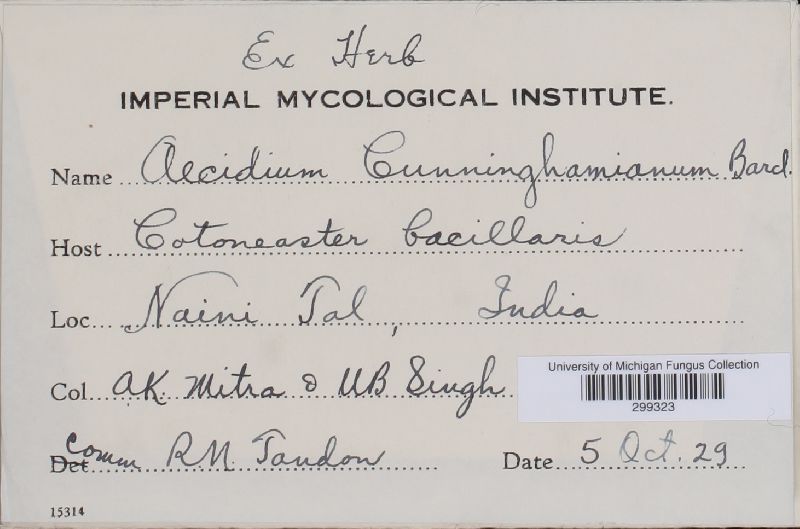 Ex Herb
IMPERIAL MYCOLOGICAL INSTITUTE.
Name Aecidium Cunninghamianum Barcl.
Host Cotoneaster bacillaris
Loc. Naini Tal, India
Col. AK Mitra & UB Singh
University of Michigan Fungus Collection
299323
Det Comm RN Tandon Date 5 Oct. 29
15314